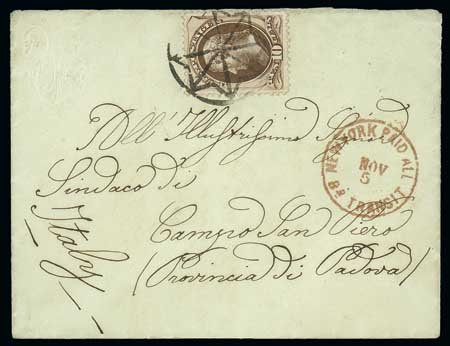 All' Illustrissimo Signor
Sindaco di
Campo San Piero
(Provincia di Padova)
Italy
NEW YORK PAID ALL
NOV
5
Br TRANSIT